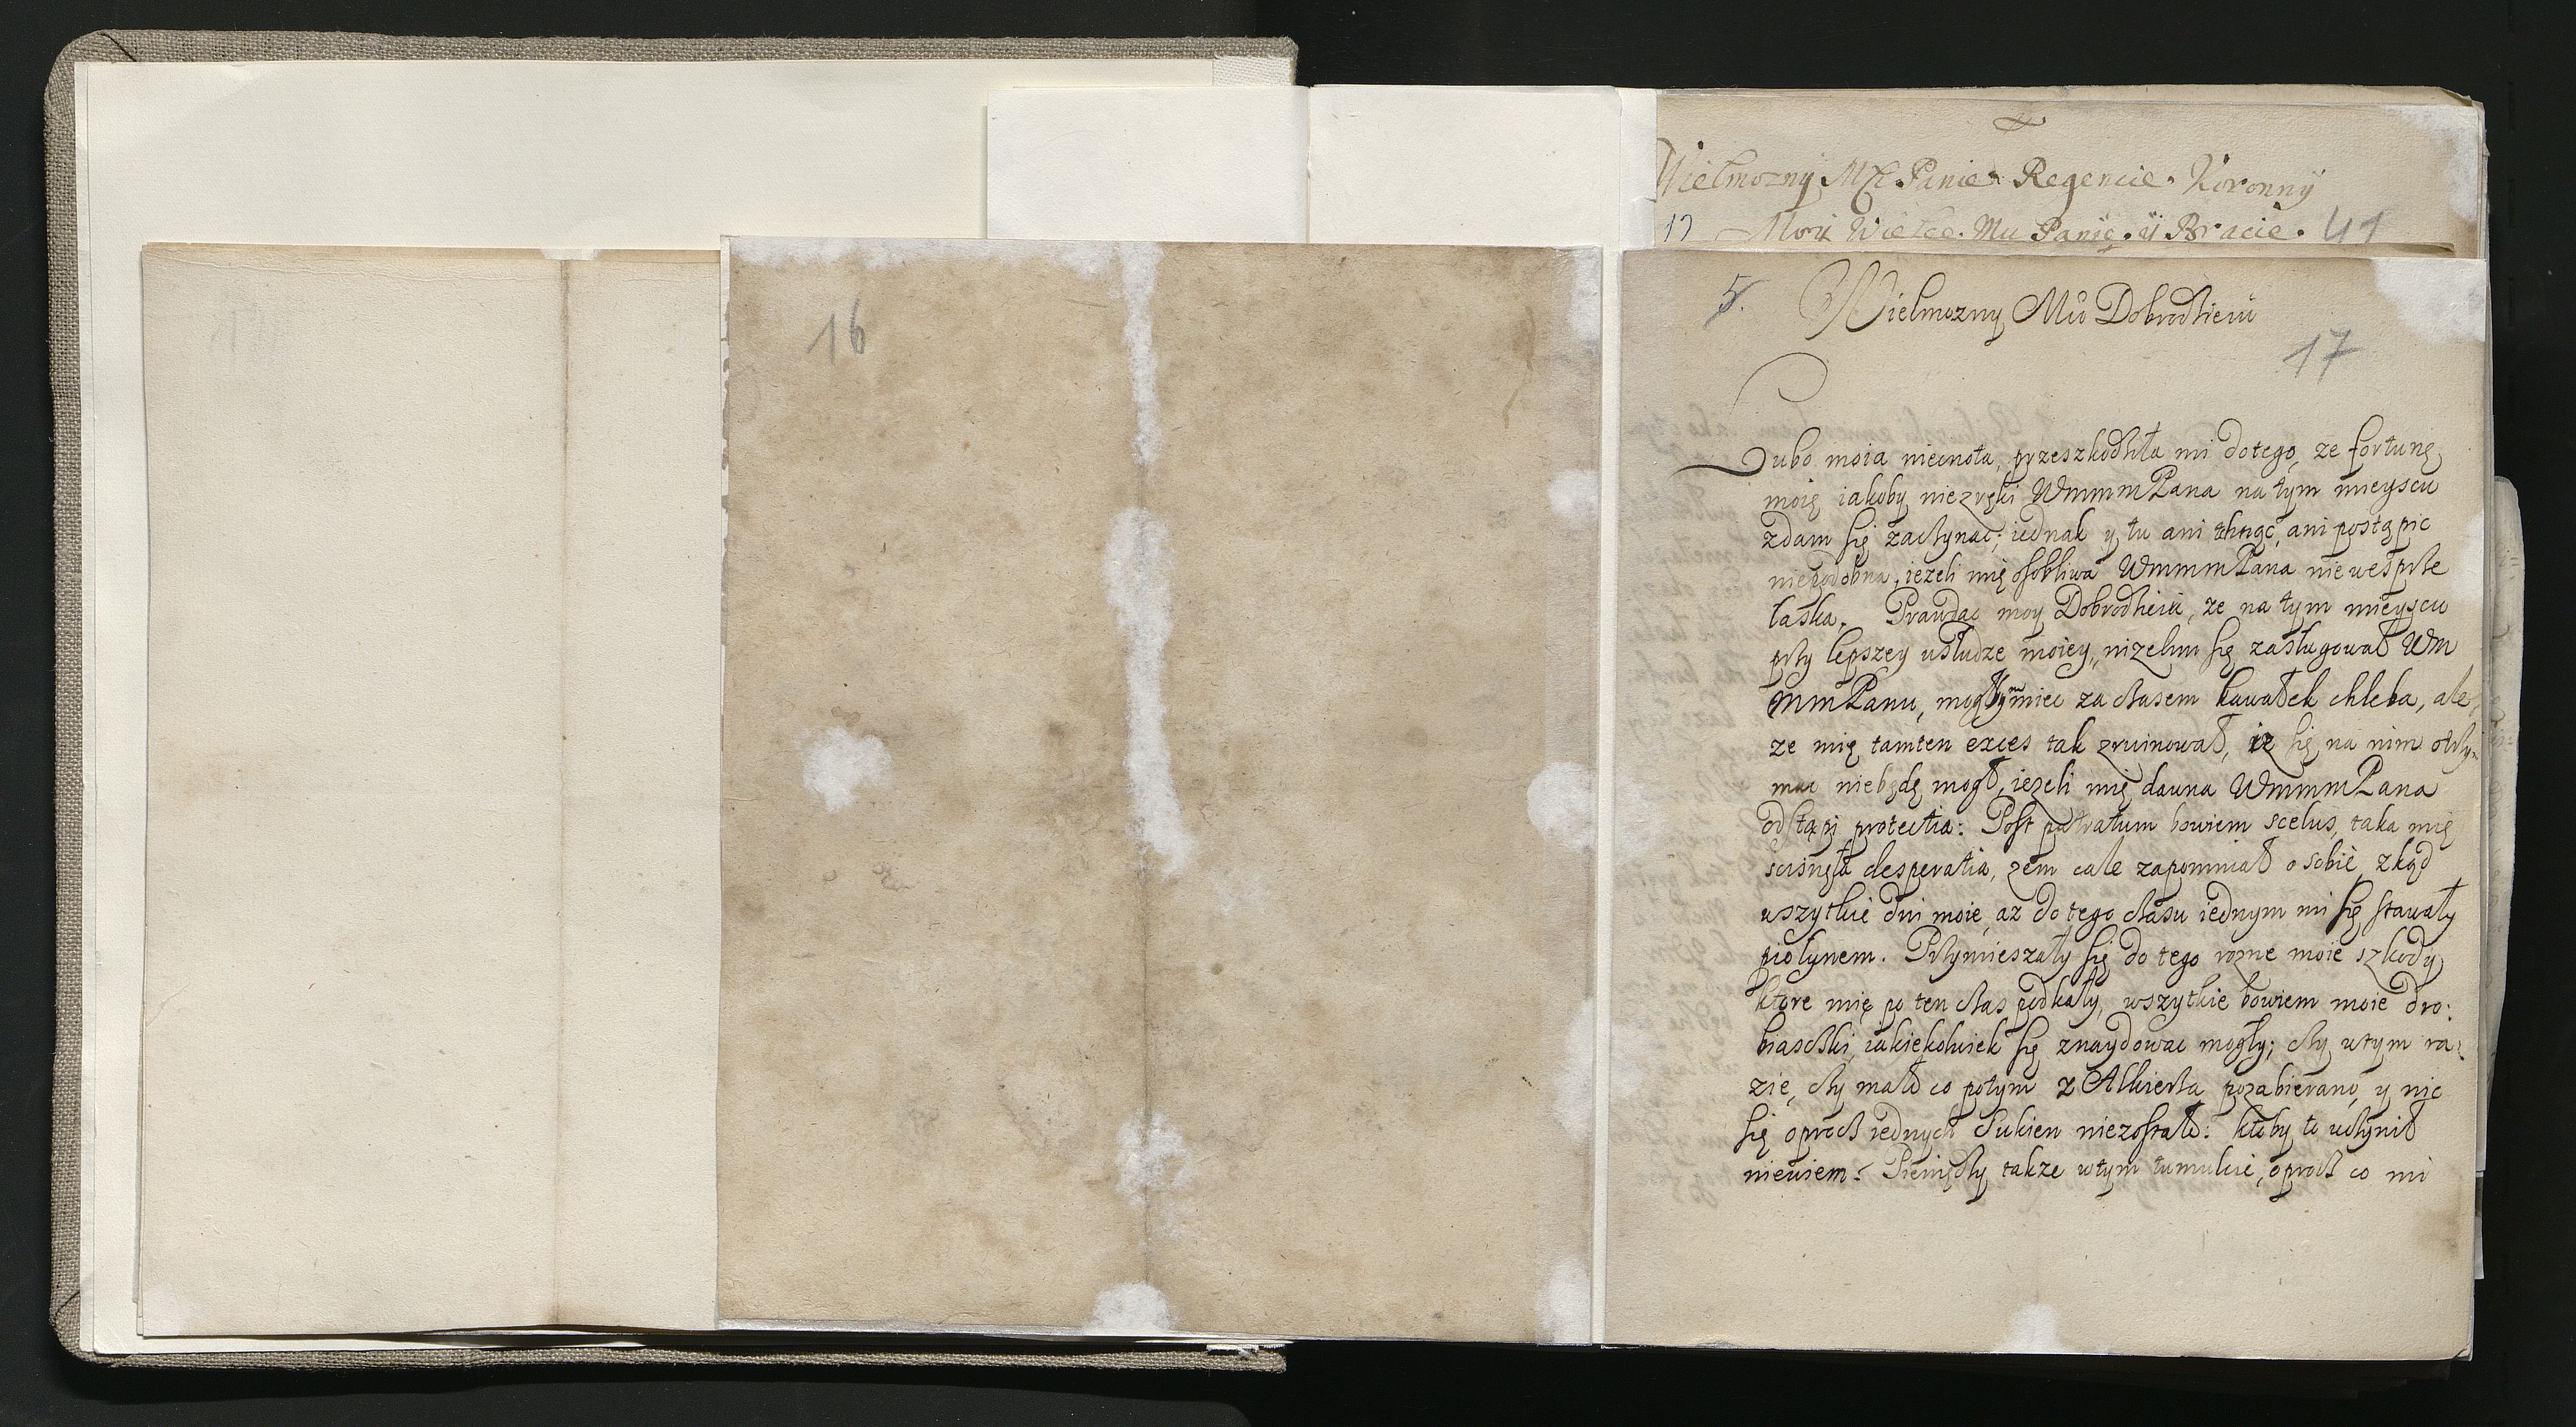 16
Wielmozny Mx Panie Regencie Koronny
17 Moy Wielce Mu Panie y Bracie. 41
5. Wielmozny Mu Dobrodzieiu
17
Lubo moia niecnota, przeszkodziła mi dotego, ze fortunę
moię iakoby niezręki WmmmPana na tym mieyscu
zdam się zaczynac; iednak y tu ani tchnąc, ani postąpic
niepodobna, iezeli mię osobliwa WmmmPana niewesprze
łaska. Prawdac moy Dobrodzieiu, ze na tym mieyscu
przy lepszey usłudze moiey, nizelim się zasługował Wm
mmPanu, mogłbym miec za czasem kawałek chleba, ale,
ze mię tamten exces tak zruinował, iz się na nim otrzy-
mac niebędę mogł, iezeli mię dawna WmmmPana
odstąpi protectia: Post patratum bowiem scelus, taka mię
scisnęła desperatia, zem cale zapomniał o sobie, zkąd
wszytkie dni moie, az do tego czasu iednym mi się stawały
piołynem. Przymieszały się do tego rozne moie szkody
ktore mię po ten czas podkały, wszytkie bowiem moie dro:
biaszki, iakiekolwiek się znaydowac mogły; czy wtym ra:
zie, czy mało co potym z Alkierza pozabierano, y nic
się oprocz iednych Sukien niezostało: ktoby to uczynił
niewiem. Pieniędzy takze wtym tumulcie, oprocz co mi